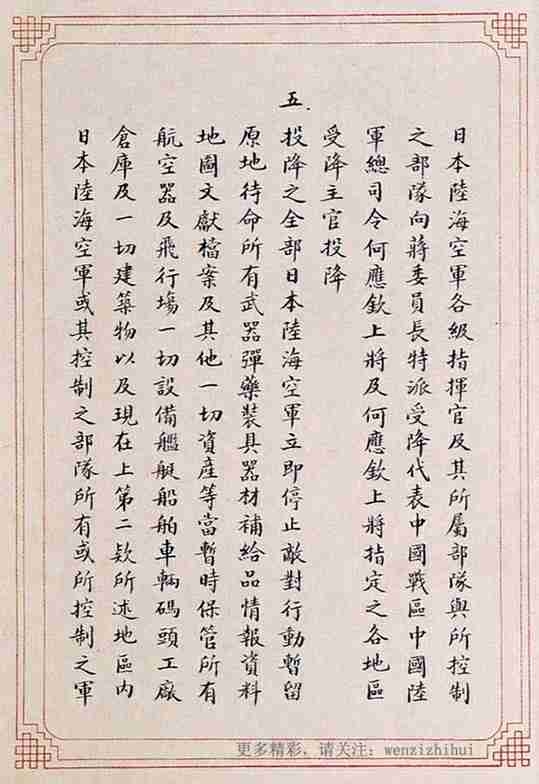 日本陸海空軍各級指揮官及其所屬部隊與所控制
之部隊向蔣委員長特派受降代表中國戰區中國陸
軍總司令何應欽上將及何應欽上將指定之各地區
受降主官投降
五.投降之全部日本陸海空軍立即停止敵對行動暫留
原地待命所有武器彈藥裝具器材補給品情報資料
地圖文獻檔案及其他一切資產等當暫時保管所有
航空器及飛行場一切設備艦艇船舶車輛碼頭工廠
倉庫及一切建築物以及現在上第二款所述地區內
日本陸海空軍或其控制之部隊所有或所控制之軍
更多精彩，请关注：wenzizhihui